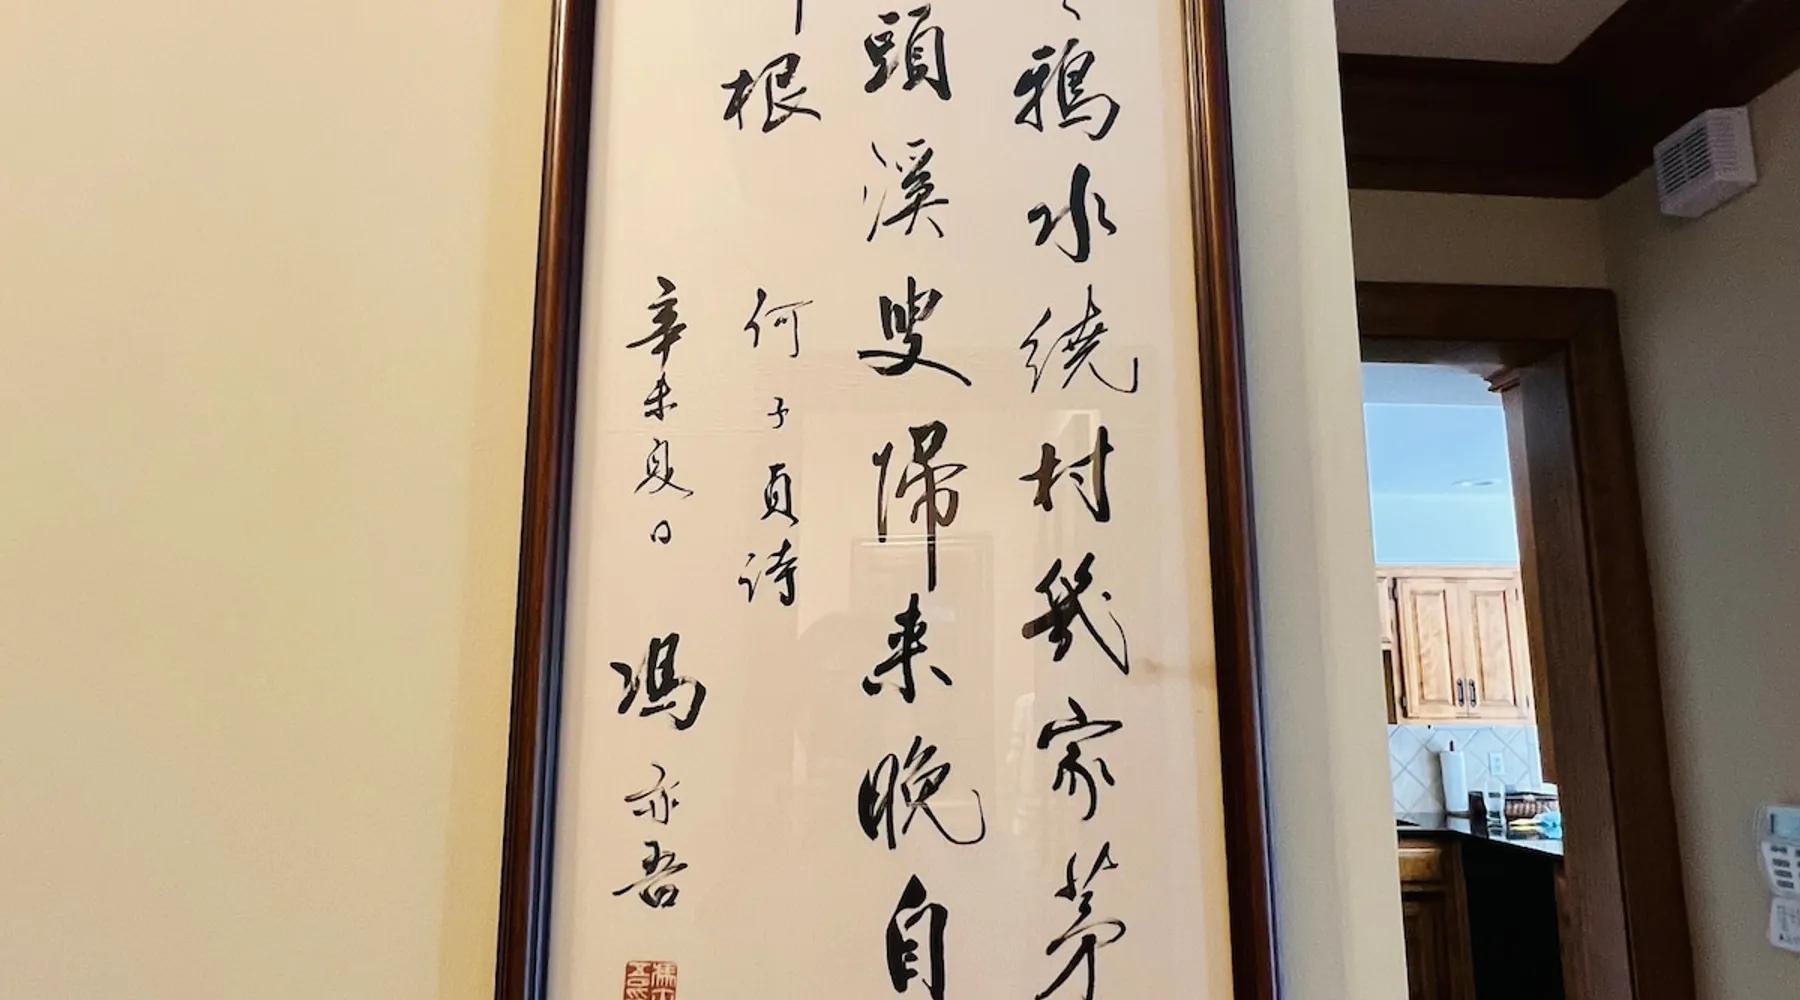 鴉水繞村幾家茅
頭溪叟歸来晚自
根
何子貞詩
辛未夏日
馮亦吾